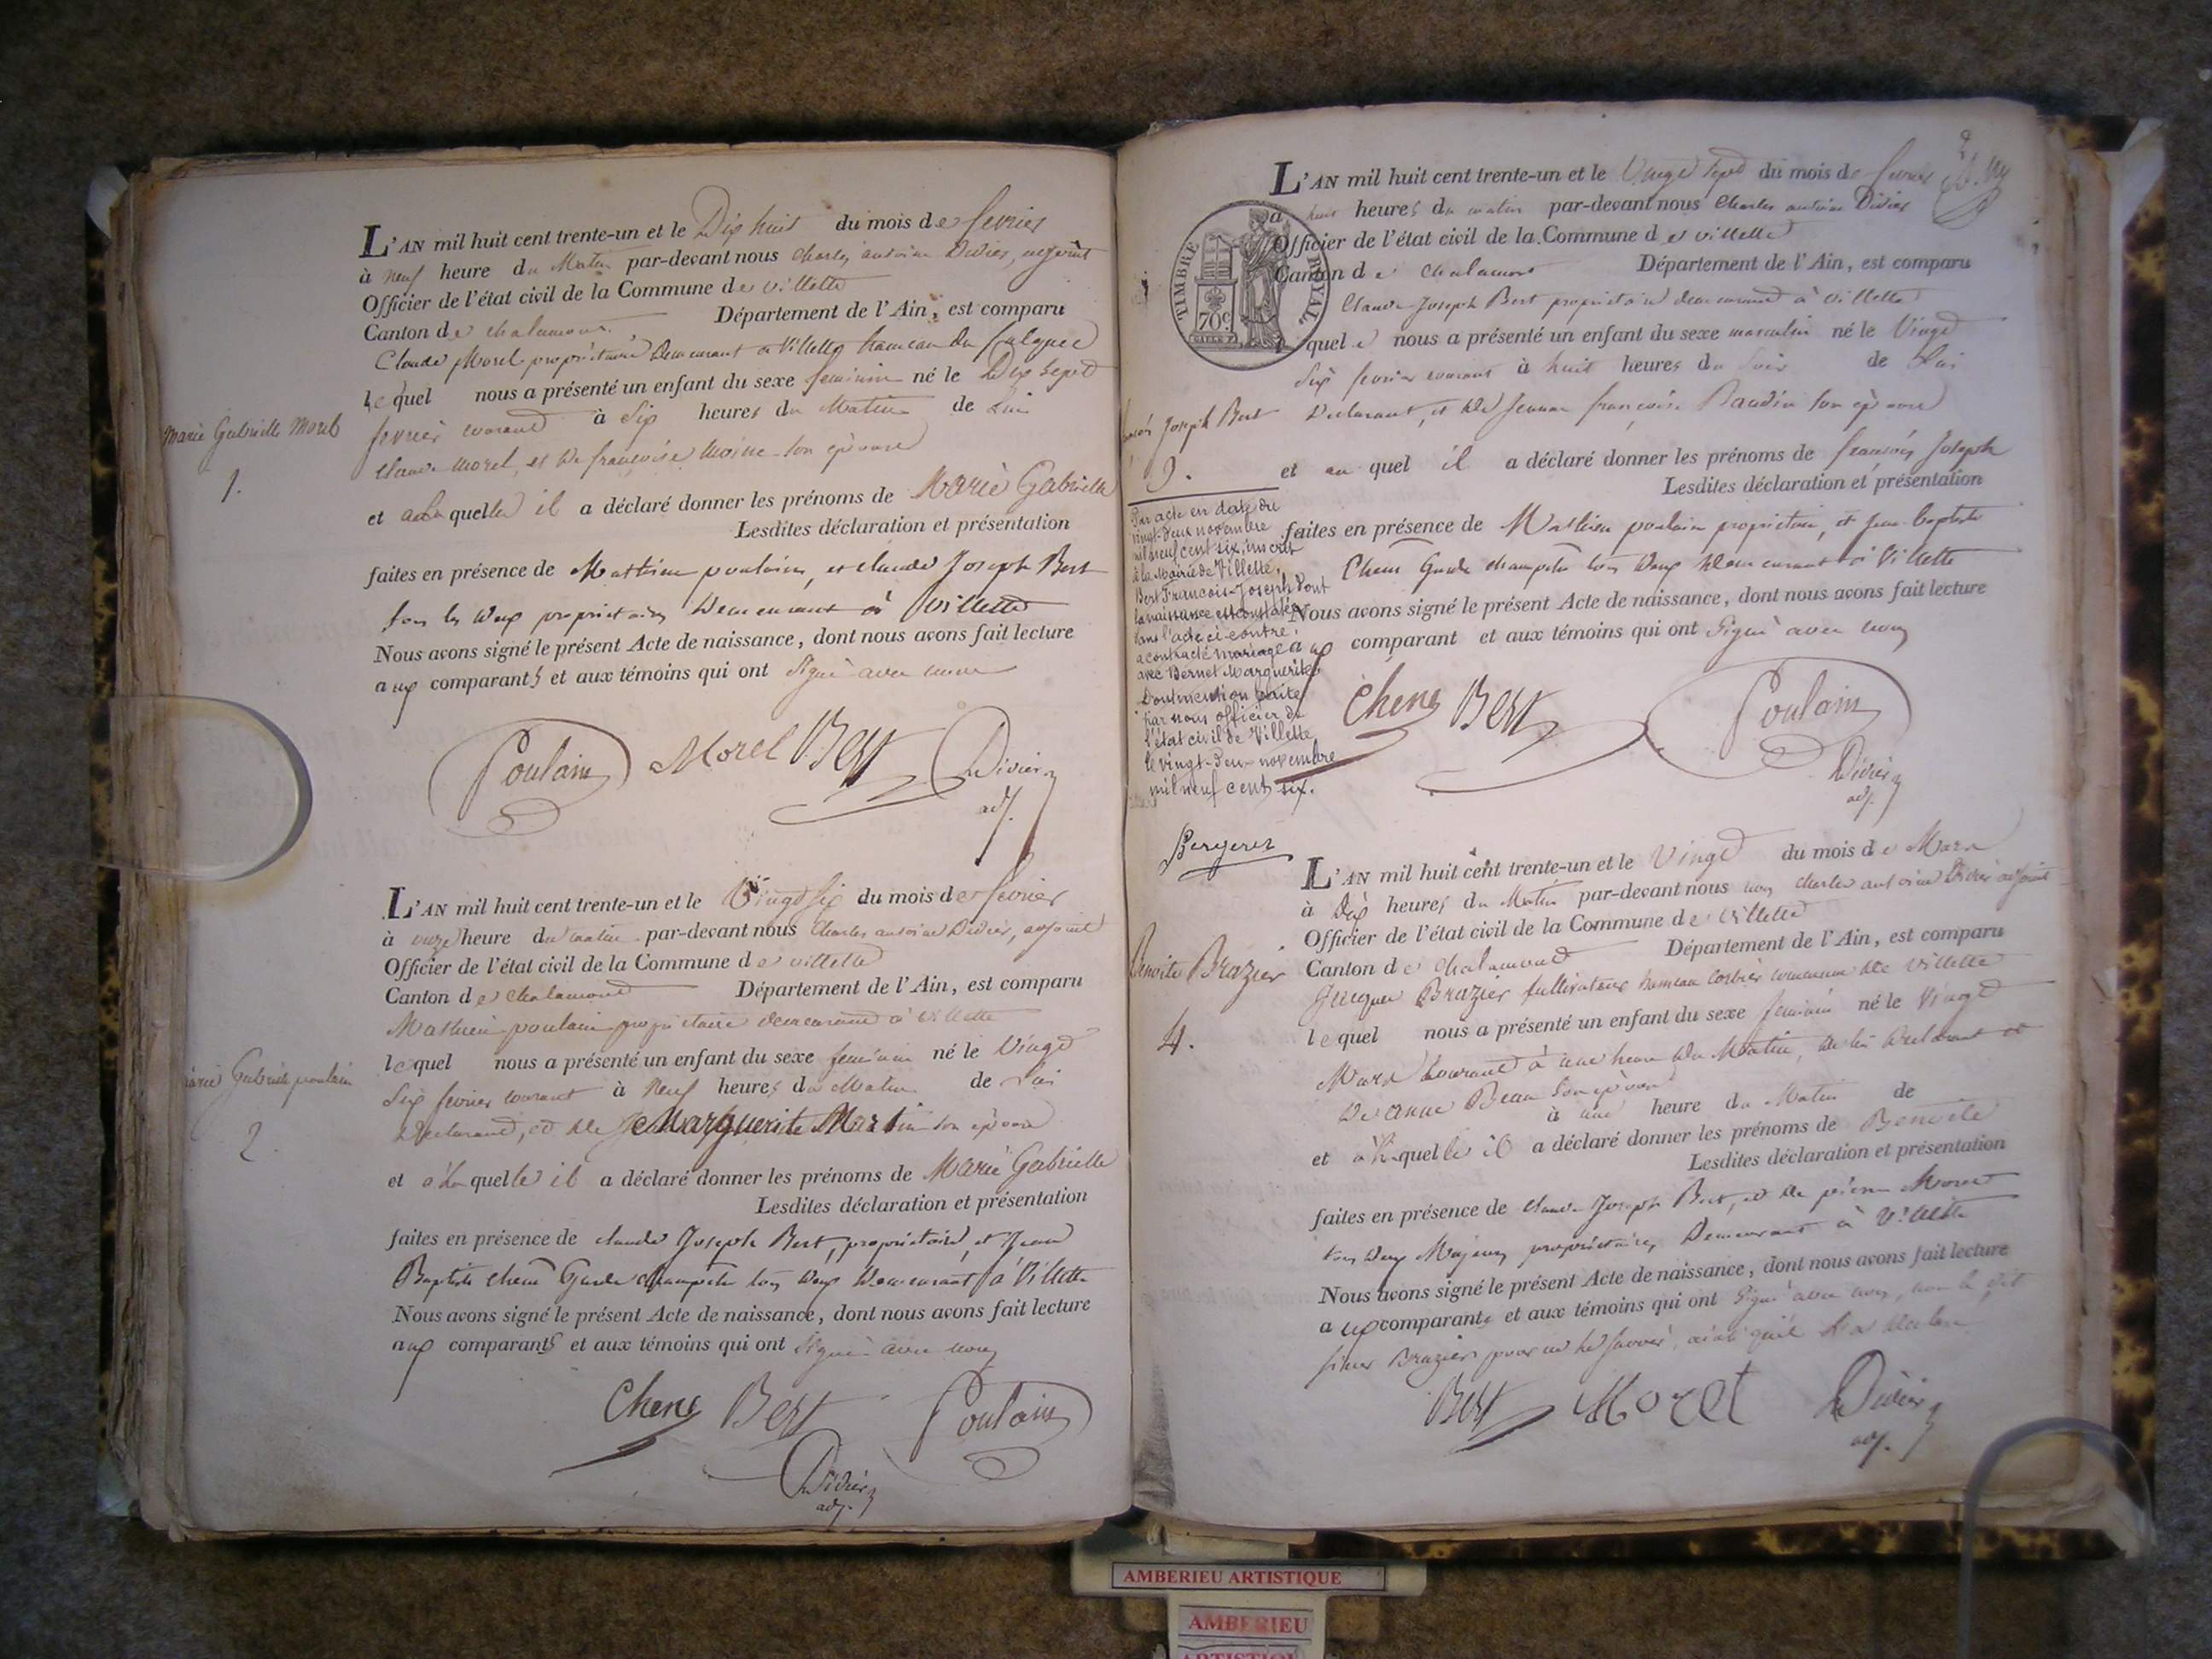 L'AN mil huit cent trente-un et le Dix huit du mois de fevrier
à neuf heure du Matin par-devant nous charles antoine Didier, adjoint
Officier de l'état civil de la Commune de villette
Canton de chalamont Département de l'Ain, est comparu
Claude Morel propriétaire demeurant à Villette hameau du
lequel nous a présenté un enfant du sexe feminin né le Dix Sept
fevrier courant à Six heures du Matin de Lui
claude Morel, et de françoise Moine son épouse
Marie Gabrielle Morel
1.
et a La quelle il a déclaré donner les prénoms de Marie Gabrielle
Lesdites déclaration et présentation
faites en présence de Mathieu poulain, et claude Joseph Bert
tous les deux propriétaires demeurant à Villette
Nous avons signé le présent Acte de naissance, dont nous avons fait lecture
aux comparants et aux témoins qui ont Signé avec nous
Poulain Morel Bert Didier
adj.
L'AN mil huit cent trente-un et le Vingt Six du mois de fevrier
à onze heure du matin par-devant nous Charles antoine Didier, adjoint
Officier de l'état civil de la Commune de villette
Canton de chalamont Département de l'Ain, est comparu
Mathieu poulain propriétaire demeurant à Villette
lequel nous a présenté un enfant du sexe feminin né le Vingt
Six fevrier courant à Neuf heures du Matin de Lui
Déclarant, et de Marguerite Martin son épouse
Marie Gabrielle poulain
2.
et a La quelle il a déclaré donner les prénoms de Marie Gabrielle
Lesdites déclaration et présentation
faites en présence de claude Joseph Bert, propriétaire, et Jean
Baptiste chene Garde champetre tous deux demeurant à Villette
Nous avons signé le présent Acte de naissance, dont nous avons fait lecture
aux comparants et aux témoins qui ont Signé avec nous
Chene Bert Poulain
Didier
adj.
L'AN mil huit cent trente-un et le Vingt Sept du mois de fevrier
à huit heures du matin par-devant nous Charles antoine Didier
Officier de l'état civil de la Commune de villette
Canton de chalamont Département de l'Ain, est comparu
Claude Joseph Bert propriétaire demeurant à Villette
quel nous a présenté un enfant du sexe masculin né le Vingt
Six fevrier courant à huit heures du Soir de Lui
Déclarant, et de Jeanne françoise Baudin son épouse
TIMBRE ROYAL
70c
Joseph Bert
3.
et au quel il a déclaré donner les prénoms de françois Joseph
Lesdites déclaration et présentation
faites en présence de Mathieu poulain propriétaire, et Jean baptiste
Chene Garde champetre tous deux demeurant à Villette
Nous avons signé le présent Acte de naissance, dont nous avons fait lecture
aux comparant et aux témoins qui ont Signé avec nous
Par acte en date du
vingt-deux novembre
mil neuf cent six, inscrit
à la Mairie de Villette,
Bert François-Joseph dont
la naissance est constatée
dans l'acte ci-contre,
a contracté mariage
avec Bernet Marguerite
Dont mention faite
par nous officier de
l'état civil de Villette
le vingt-deux novembre
mil neuf cent six.
Bergeret
Chene Bert Poulain
Didier
adj.
L'AN mil huit cent trente-un et le Vingt du mois de Mars
à Dix heures du Matin par-devant nous charles antoine Didier adjoint
Officier de l'état civil de la Commune de villette
Canton de chalamont Département de l'Ain, est comparu
Jacques Brazier cultivateur hameau commune de villette
lequel nous a présenté un enfant du sexe feminin né le Vingt
Mars Courant à une heure du Matin, de lui declarant et
De anne Beau Son épouse
à une heure du Matin de
Benoite Brazier
4.
et à la quelle il a déclaré donner les prénoms de Benoite
Lesdites déclaration et présentation
faites en présence de claude Joseph Bert, et de pierre Moret
tous deux Majeurs propriétaires, Demeurant à Villette
Nous avons signé le présent Acte de naissance, dont nous avons fait lecture
aux comparants et aux témoins qui ont Signé avec nous, non le dit
Brazier pour ne le savoir, ainsi qu'il l'a déclaré
Bert Moret Didier
adj.
AMBERIEU ARTISTIQUE
AMBERIEU
ARTISTIQUE